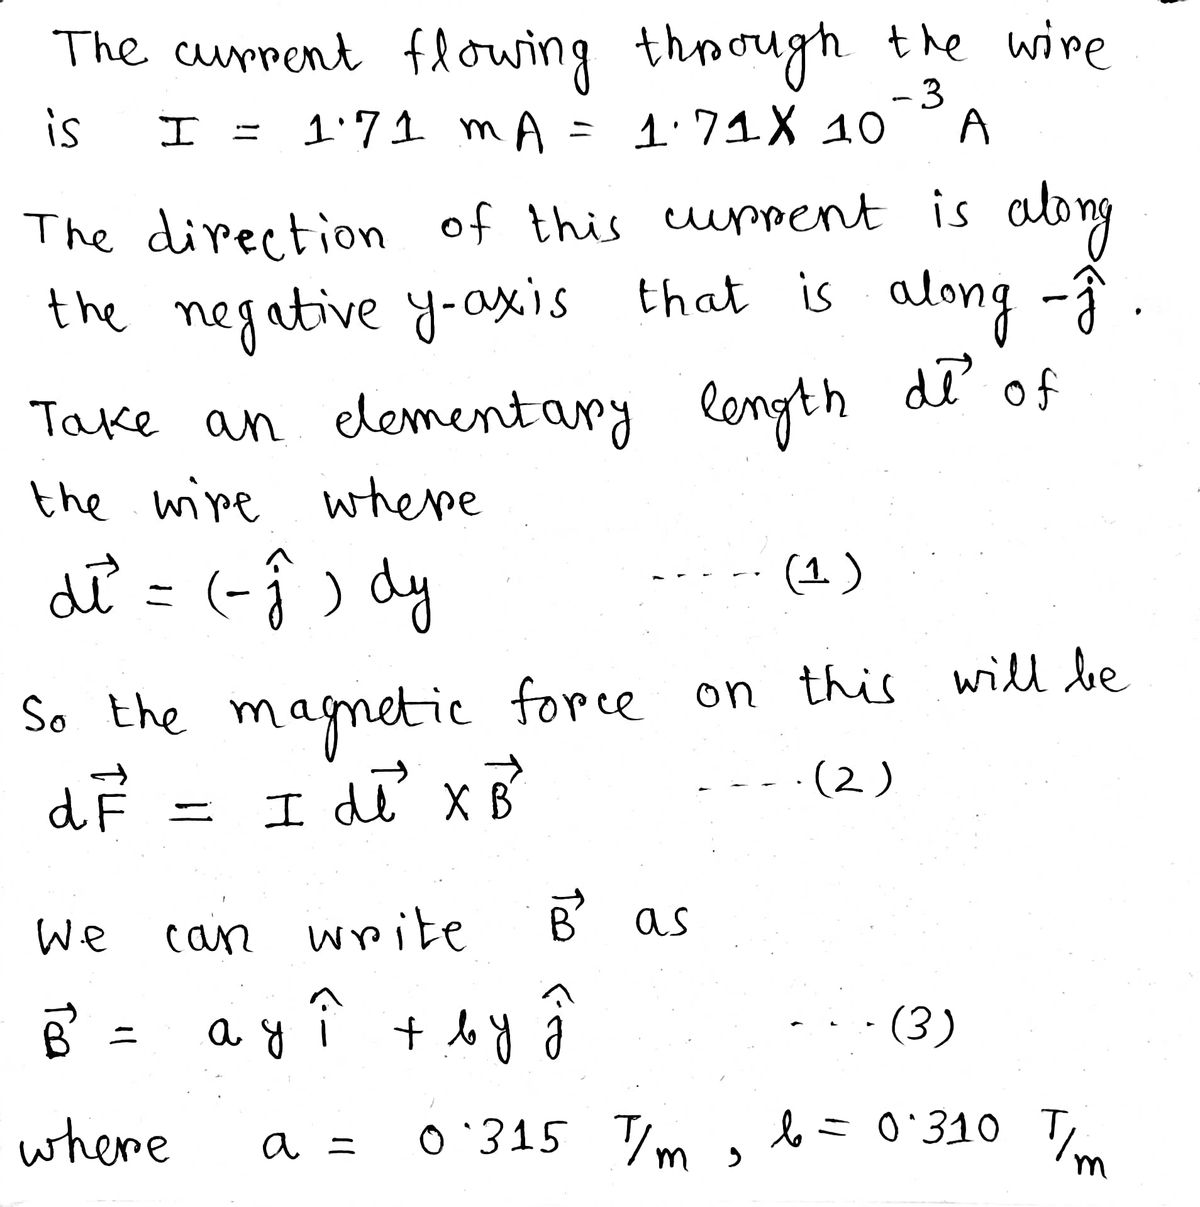 The current flowing through the wire
is I = 1·71 mA = 1·71 X 10⁻³ A
The direction of this current is along
the negative y-axis that is along -ĵ .
Take an elementary length dl⃗ of
the wire where
dl⃗ = (-ĵ ) dy ----- (1)
So the magnetic force on this will be
dF⃗ = I dl⃗ X B⃗ ----·(2)
We can write B⃗ as
B⃗ = a y î + b y ĵ ----(3)
where a = 0·315 T/m , b = 0·310 T/m